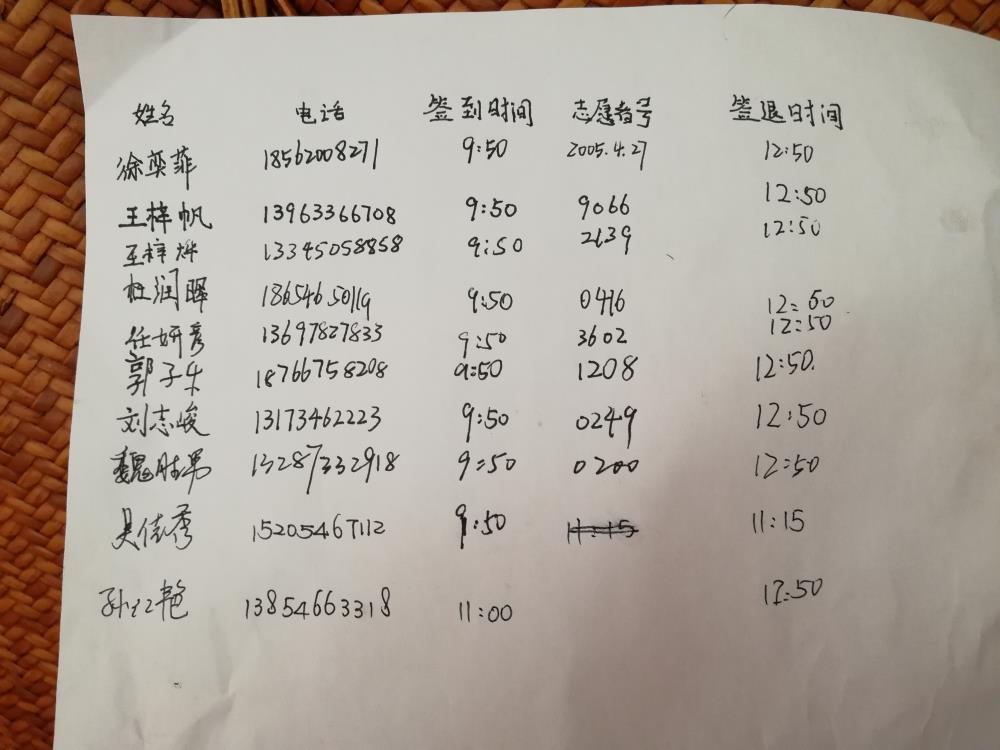 姓名 电话 签到时间 志愿者号 签退时间
徐奕菲 18562008271 9:50 2005.4.27 12:50
王梓帆 13963366708 9:50 9066 12:50
王梓烨 13345058858 9:50 2639 12:50
杜润晖 18654650119 9:50 0416 12:50
任妍彦 13697827833 9:50 3602 12:50
郭子乐 18766758208 9:50 1208 12:50.
刘志峻 13173462223 9:50 0249 12:50
魏胜男 13287332918 9:50 0200 12:50
吴佳秀 15205467112 9:50 11:15 11:15
孙红艳 13854663318 11:00 12:50